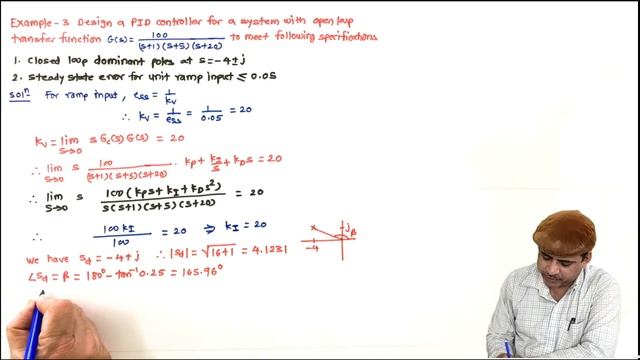 Example-3 Design a PID controller for a system with open loop
transfer function G(s) = 100/((s+1)(s+5)(s+20)) to meet following specifications
1. closed loop dominant poles at s=-4±j
2. steady state error for unit ramp input ≤ 0.05
solⁿ For ramp input, e_ss = 1/K_V
∴ K_V = 1/e_ss = 1/0.05 = 20
K_V = lim_{s→0} s G_c(s) G(s) = 20
∴ lim_{s→0} s 100/((s+1)(s+5)(s+20)) · K_P + K_I/s + K_D s = 20
∴ lim_{s→0} s 100(K_P s + K_I + K_D s²)/(s(s+1)(s+5)(s+20)) = 20
∴ 100 K_I/100 = 20 ⇒ K_I = 20
We have s_d = -4+j ∴ |s_d| = √(16+1) = 4.1231
∠s_d = β = 180° - tan⁻¹ 0.25 = 165.96°
x
j
β
-4